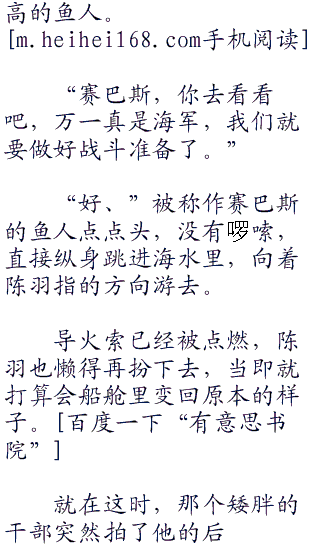 高的鱼人。
[m.heihei168.com手机阅读]
“赛巴斯，你去看看
吧，万一真是海军，我们就
要做好战斗准备了。”
“好、”被称作赛巴斯
的鱼人点点头，没有啰嗦，
直接纵身跳进海水里，向着
陈羽指的方向游去。
导火索已经被点燃，陈
羽也懒得再扮下去，当即就
打算会船舱里变回原本的样
子。[百度一下“有意思书
院”]
就在这时，那个矮胖的
干部突然拍了他的后